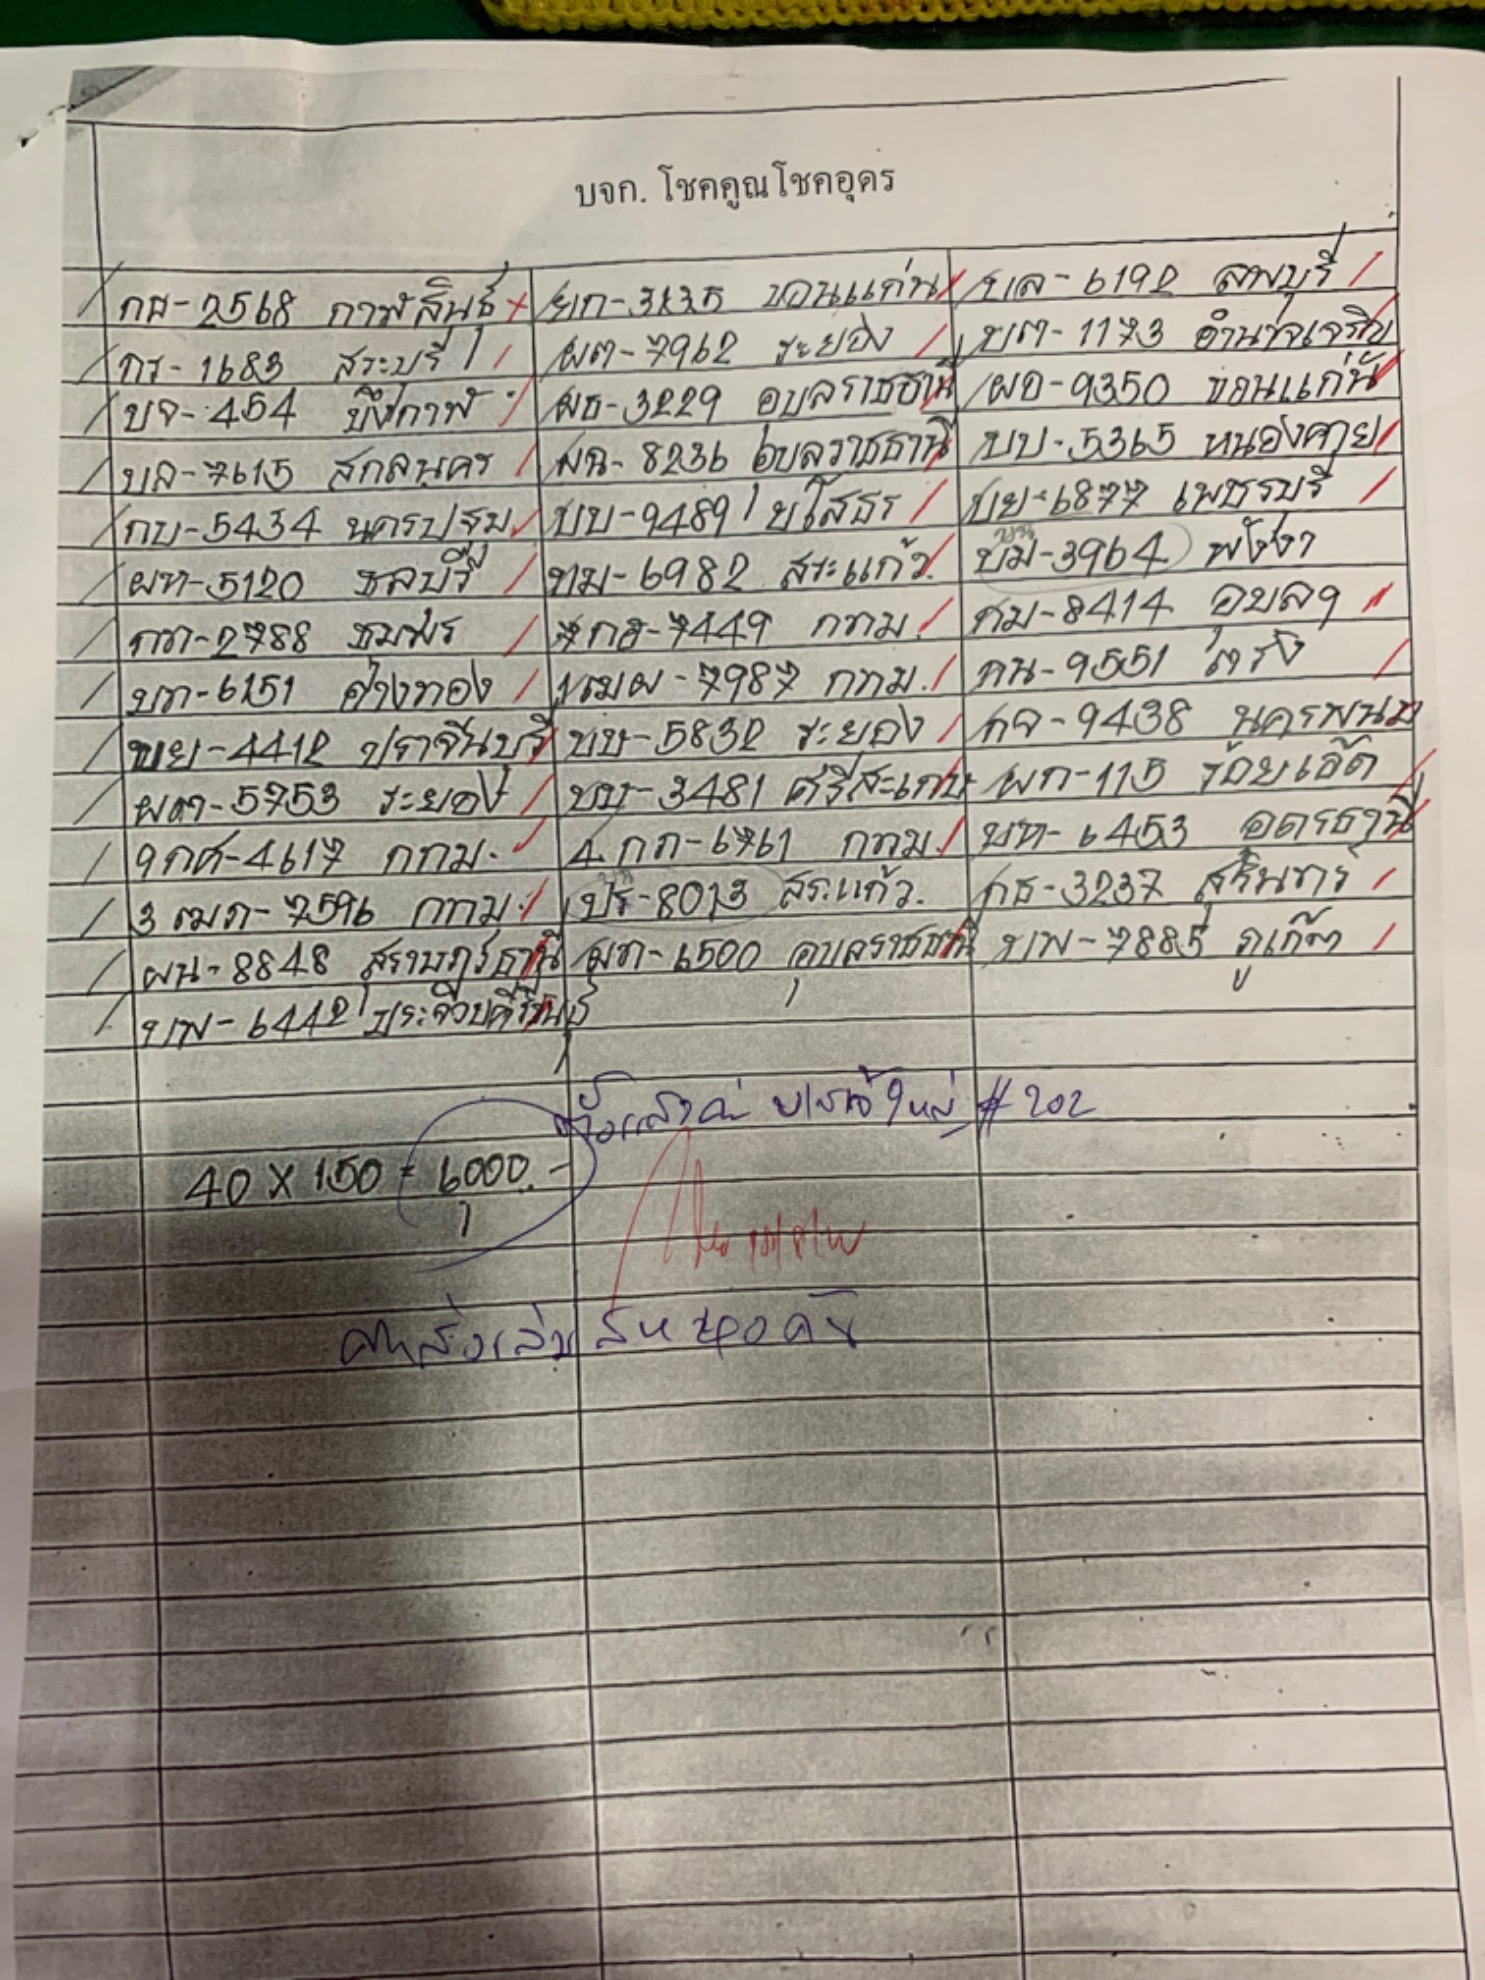 บจก. โชคคูณโชคอุดร
กส-2568 กาฬสินธุ์ ยก-3235 ขอนแก่น บล-6192 ลพบุรี
กร-1683 สระบุรี ผต-7962 ระยอง บต-1173 อำนาจเจริญ
บจ-454 บึงกาฬ ผธ-3229 อุบลราชธานี ผอ-9350 ขอนแก่น
บล-7615 สกลนคร ผฉ-8236 อุบลราชธานี บบ-5365 หนองคาย
กบ-5434 นครปฐม บบ-9489 ยโสธร บย-6877 เพชรบุรี
ผท-5120 ชลบุรี บม-6982 สระแก้ว บม-3964 พังงา
กต-2788 ชุมพร 7กอ-7449 กทม. กม-8414 อุบลฯ
บก-6151 อ่างทอง 1ฒผ-7987 กทม. กน-9551 ตรัง
ขย-4412 ปราจีนบุรี ขบ-5832 ระยอง กจ-9438 นครพนม
ผต-5753 ระยอง บบ-3481 ศรีสะเกษ ผก-115 ร้อยเอ็ด
9กศ-4617 กทม. 4กภ-6761 กทม. บห-6453 อุดรธานี
3ฒภ-7596 กทม. บร-8013 สระแก้ว กธ-3237 สุรินทร์
ผน-8848 สุราษฎร์ธานี ผก-6500 อุบลราชธานี บพ-7885 ภูเก็ต
บพ-6442 ประจวบคีรีขันธ์
#202
40 X 150 = 6000.-